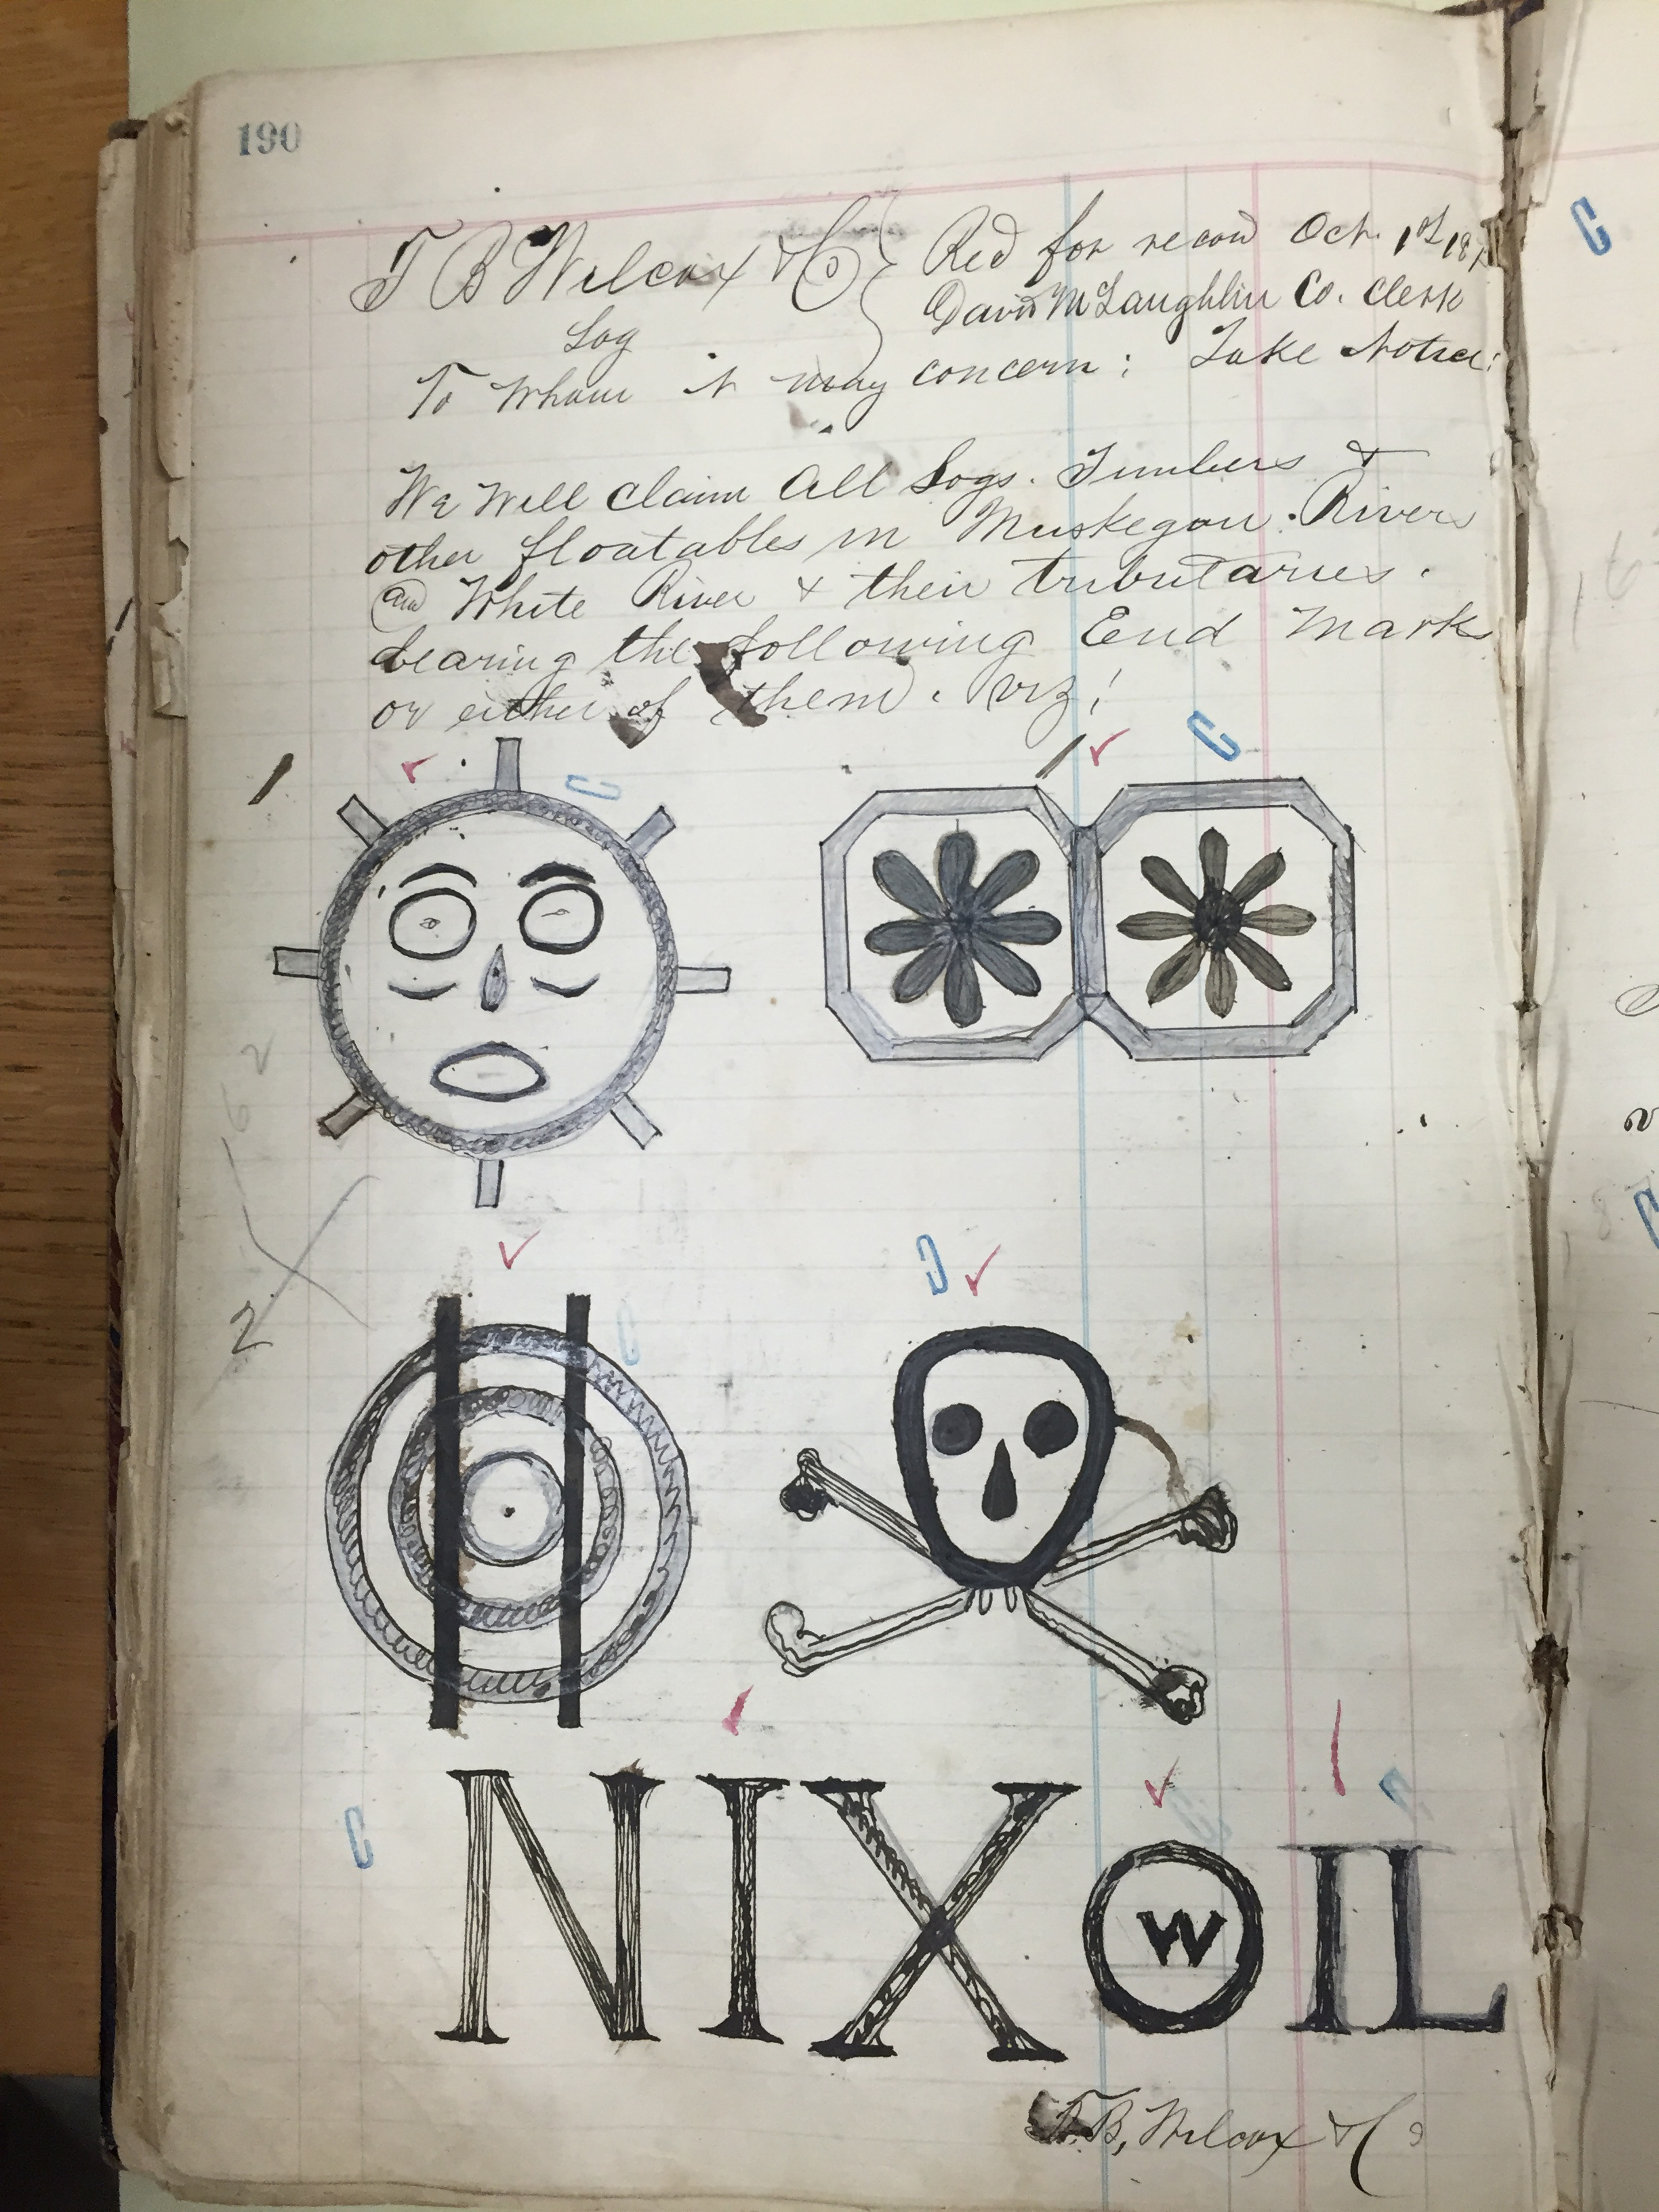 190
T B Wilcox & Co } Recd for record Oct. 1st 187
Log David McLaughlin Co. Clerk
To Whom it may concern : Take Notice:
We Will Claim All Logs. Timbers &
other floatables in Muskegon River
and White River & their tributaries.
bearing the following End Marks
or either of them. viz!
1
2
NIX
W
IL
T. B, Wilcox & Co